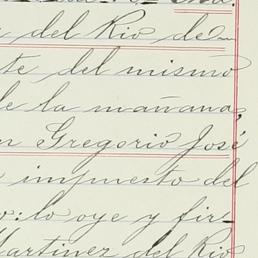 del Rio de
te del mismo
de la mañana,
n Gregorio José
impuesto del
o: lo oye y fir-
Martinez del Rio